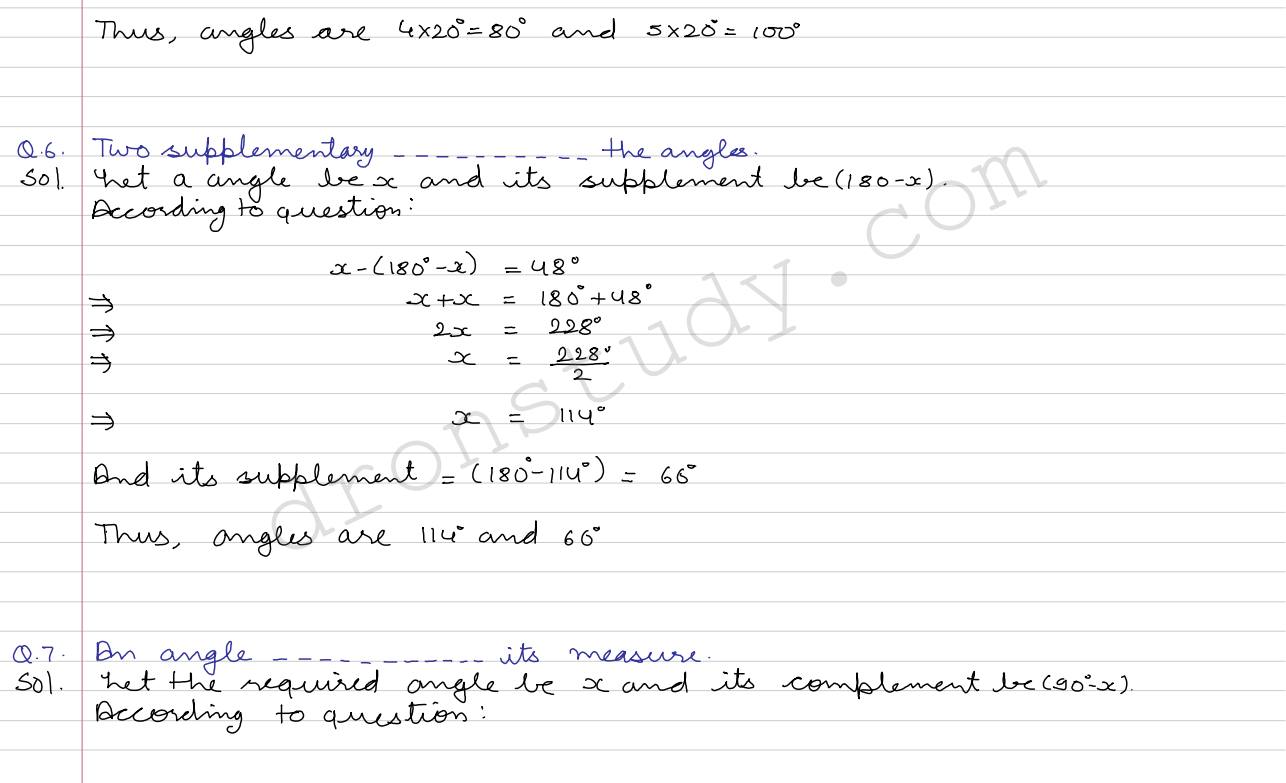 Thus, angles are 4×20° = 80° and 5×20° = 100°
Q.6. Two supplementary ---------- the angles.
Sol. Let a angle be x and its supplement be (180-x).
According to question:
x-(180°-x) = 48°
⇒ x+x = 180°+48°
⇒ 2x = 228°
⇒ x = 228°/2
⇒ x = 114°
And its supplement = (180°-114°) = 66°
Thus, angles are 114° and 66°
Q.7. An angle ------------ its measure.
Sol. Let the required angle be x and its complement be (90°-x).
According to question:
dronstudy.com